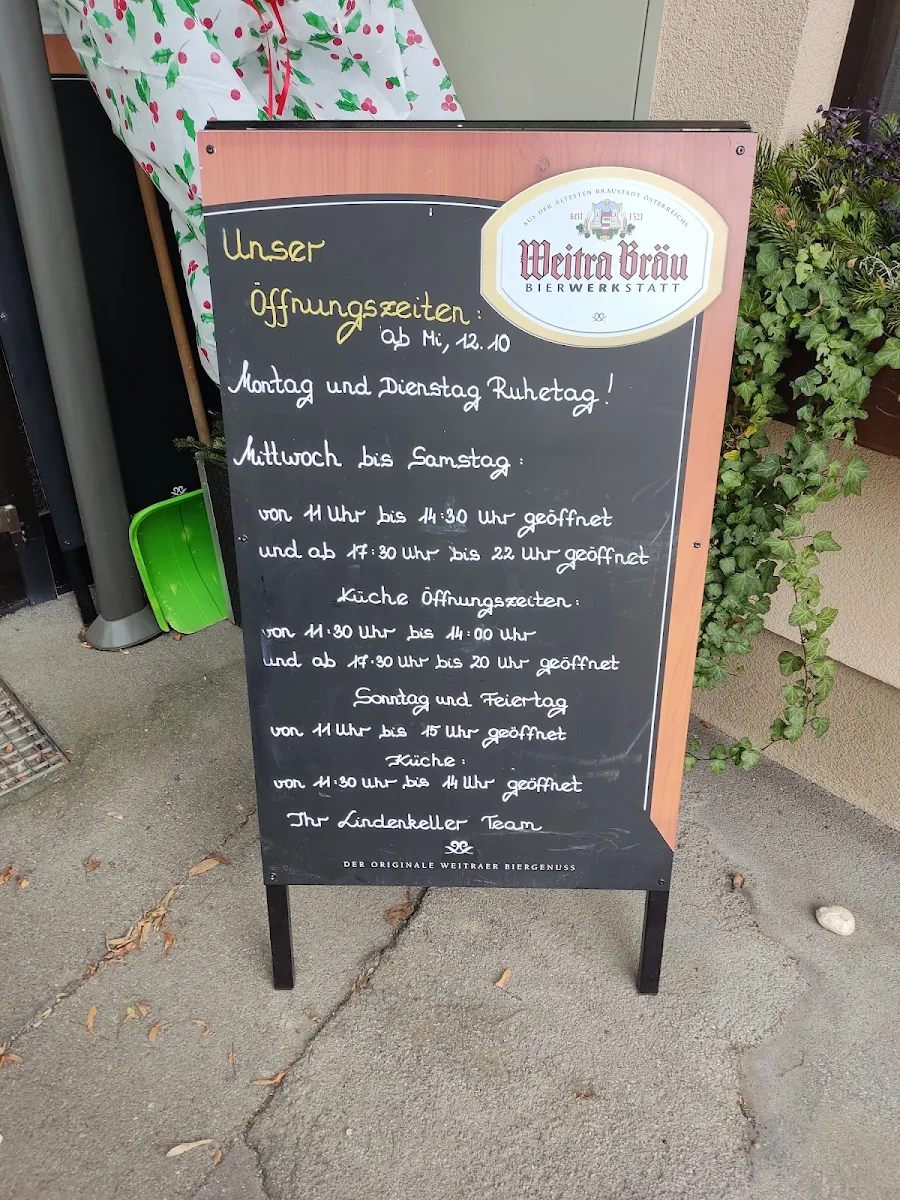 AUS DER ÄLTESTEN BRAUSTADT ÖSTERREICHS
seit 1321
Weitra Bräu
BIERWERKSTATT
Unser
Öffnungszeiten:
ab Mi, 12.10
Montag und Dienstag Ruhetag!
Mittwoch bis Samstag:
von 11 Uhr bis 14:30 Uhr geöffnet
und ab 17:30 Uhr bis 22 Uhr geöffnet
Küche Öffnungszeiten:
von 11·30 Uhr bis 14:00 Uhr
und ab 17·30 Uhr bis 20 Uhr geöffnet
Sonntag und Feiertag
von 11 Uhr bis 15 Uhr geöffnet
Küche:
von 11:30 Uhr bis 14 Uhr geöffnet
Ihr Lindenkeller Team
DER ORIGINALE WEITRAER BIERGENUSS